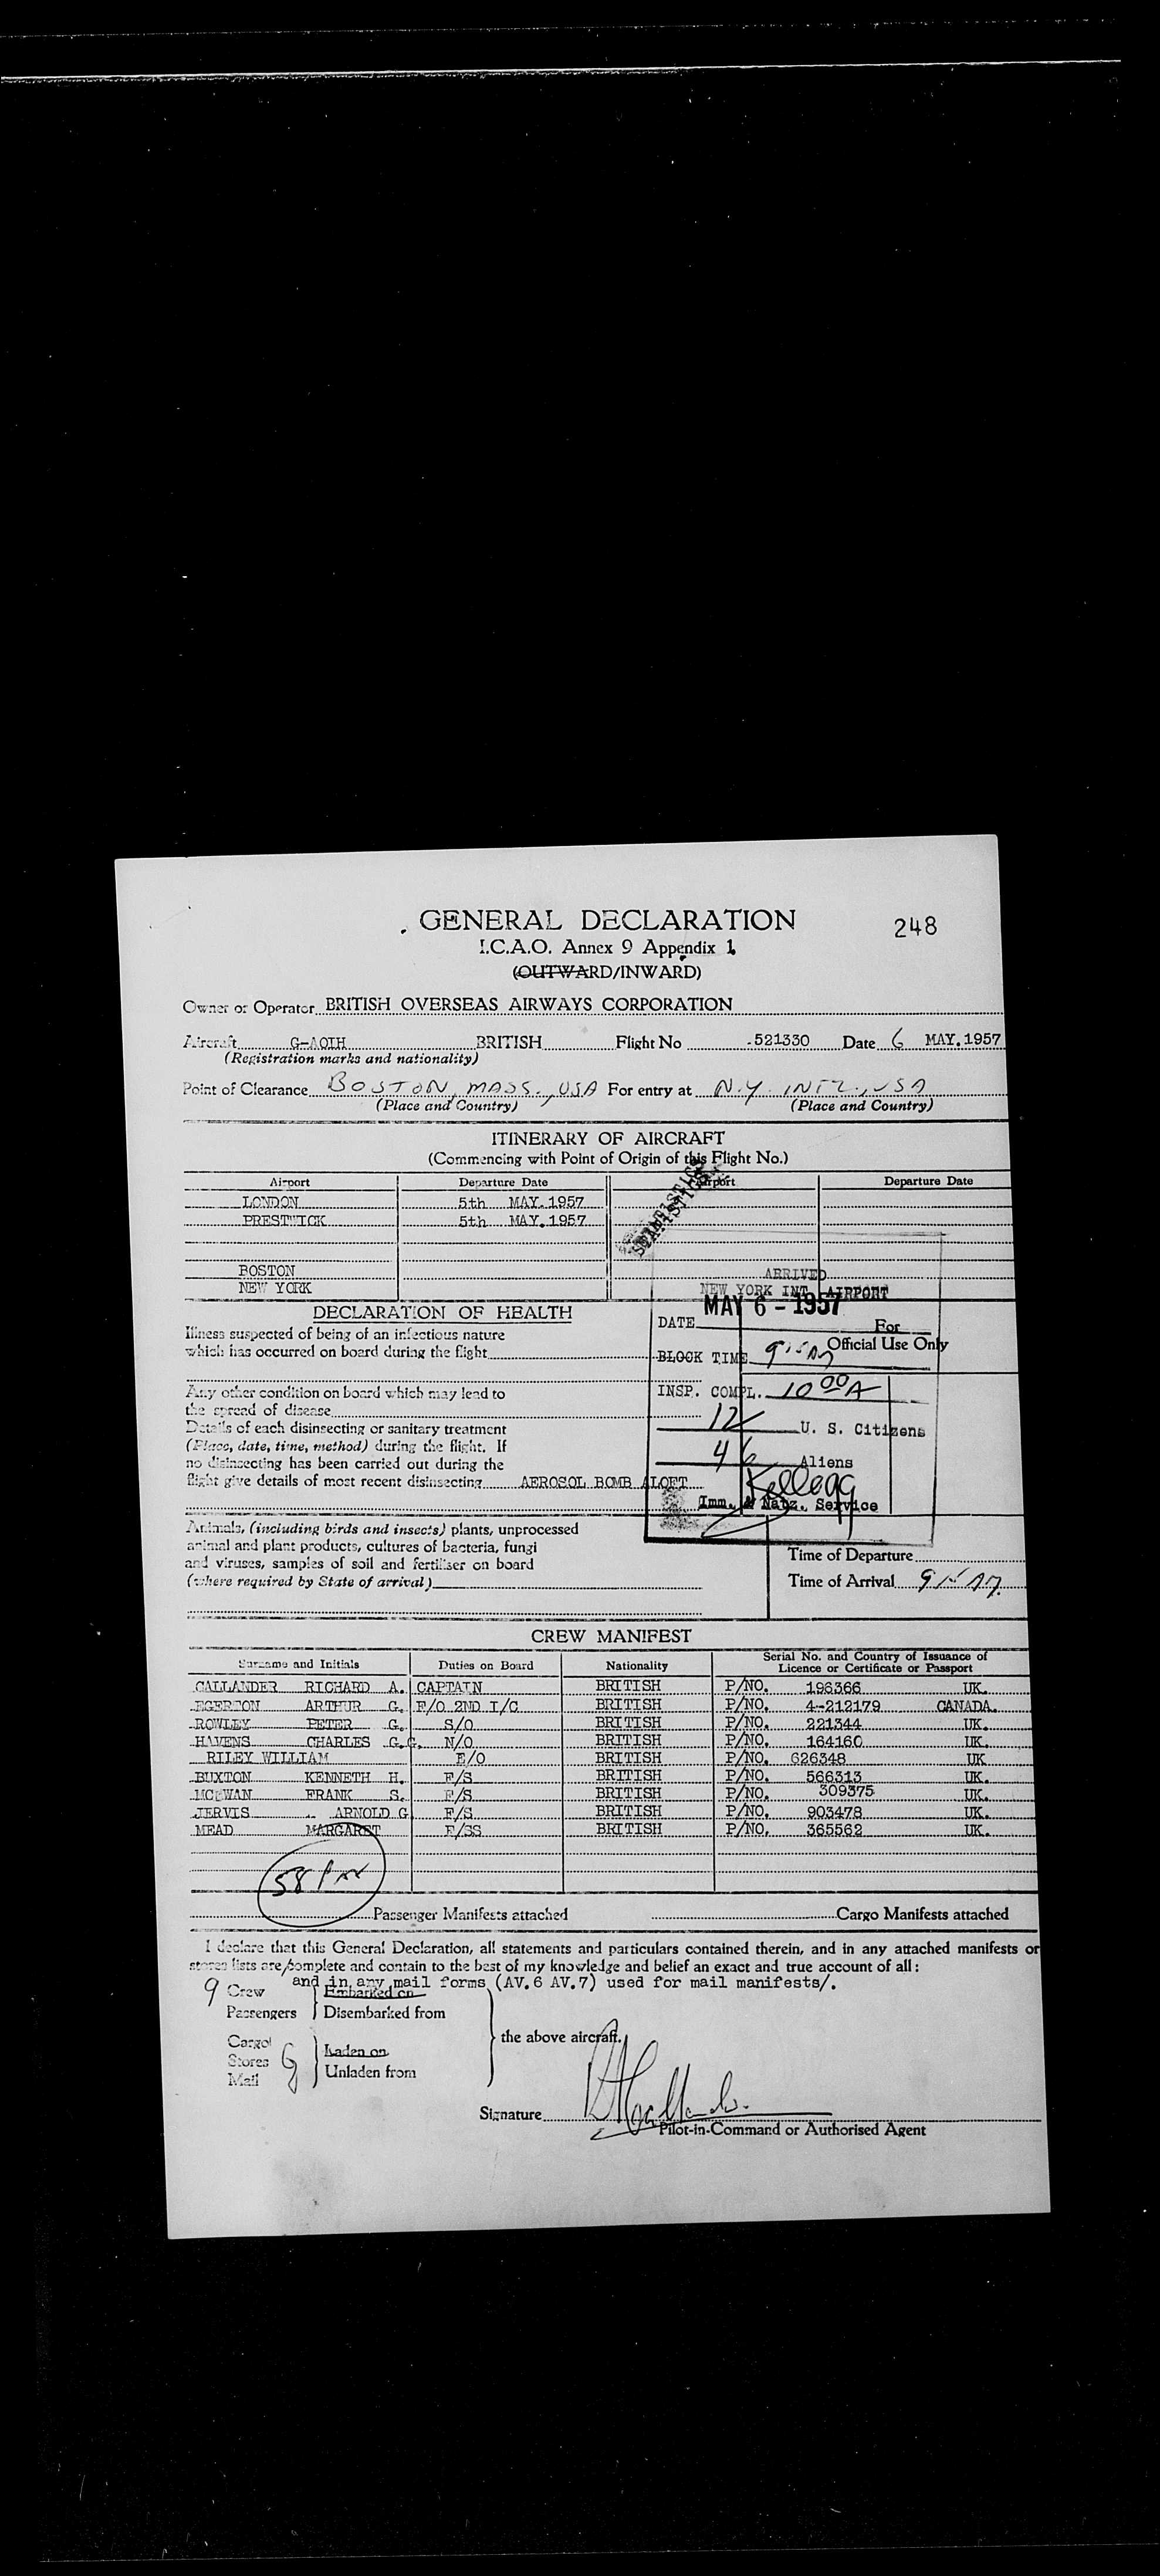 GENERAL DECLARATION
248
I.C.A.O. Annex 9 Appendix 1
(OUTWARD/INWARD)
Owner or Operator BRITISH OVERSEAS AIRWAYS CORPORATION
Aircraft G-AOIH BRITISH Flight No 521330 Date 6 MAY.1957
(Registration marks and nationality)
Point of Clearance BOSTON, MASS., USA For entry at N.Y. INTL., USA
(Place and Country) (Place and Country)
ITINERARY OF AIRCRAFT
(Commencing with Point of Origin of this Flight No.)
Airport Departure Date Airport Departure Date
LONDON 5th MAY.1957
PRESTWICK 5th MAY.1957
STATISTICS
BOSTON
NEW YORK
ARRIVED
NEW YORK INT. AIRPORT
MAY 6 - 1957
DATE
For
Official Use Only
BLOCK TIME 915 AM
INSP. COMPL. 10 00 A
12 U. S. Citizens
46 Aliens
Kellogg
Imm. & Natz. Service
DECLARATION OF HEALTH
Illness suspected of being of an infectious nature
which has occurred on board during the flight
Any other condition on board which may lead to
the spread of disease
Details of each disinsecting or sanitary treatment
(Place, date, time, method) during the flight. If
no disinsecting has been carried out during the
flight give details of most recent disinsecting AEROSOL BOMB ALOFT
Animals, (including birds and insects) plants, unprocessed
animal and plant products, cultures of bacteria, fungi
and viruses, samples of soil and fertiliser on board
(where required by State of arrival)
Time of Departure
Time of Arrival 915 AM.
CREW MANIFEST
Surname and Initials Duties on Board Nationality Serial No. and Country of Issuance of Licence or Certificate or Passport
CALLANDER RICHARD A. CAPTAIN BRITISH P/NO. 198366 UK.
EGERTON ARTHUR G. F/O 2ND I/C BRITISH P/NO. 4-212179 CANADA.
ROWLEY PETER G. S/O BRITISH P/NO. 221344 UK.
HAVENS CHARLES G.G. N/O BRITISH P/NO. 164160 UK.
RILEY WILLIAM E/O BRITISH P/NO. 626348 UK
BUXTON KENNETH H. F/S BRITISH P/NO. 566313 UK.
MCEWAN FRANK S. F/S BRITISH P/NO. 309375 UK.
JERVIS ARNOLD G F/S BRITISH P/NO. 903478 UK.
MEAD MARGARET F/SS BRITISH P/NO. 365562 UK.
58 Pax
Passenger Manifests attached Cargo Manifests attached
I declare that this General Declaration, all statements and particulars contained therein, and in any attached manifests or
stores lists are/complete and contain to the best of my knowledge and belief an exact and true account of all :
and in any mail forms (AV.6 AV.7) used for mail manifests/.
9 Crew Embarked on
Passengers Disembarked from
the above aircraft.
Cargo
Stores Laden on
Mail Unladen from
Signature
Pilot-in-Command or Authorised Agent